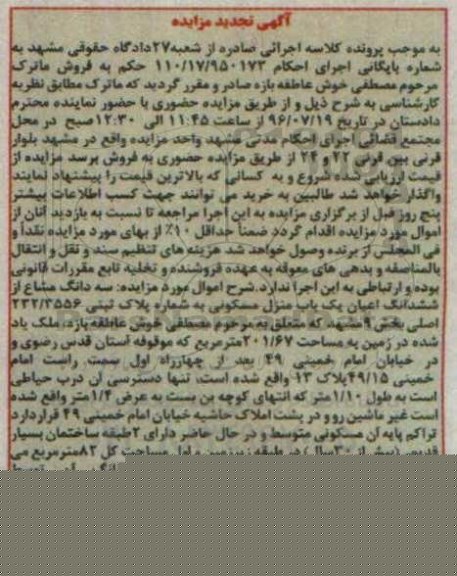 آگهی تجدید مزایده
به موجب پرونده کلاسه اجرائی صادره از شعبه۲۷دادگاه حقوقی مشهد به
شماره بایگانی اجرای احکام ۱۱۰/۱۷/۹۵۰۱۷۳ حکم به فروش ماترک
مرحوم مصطفی خوش عاطفه بازه صادر و مقرر گردید که ماترک مطابق نظریه
کارشناسی به شرح ذیل و از طریق مزایده حضوری با حضور نماینده محترم
دادستان در تاریخ ۹۶/۰۷/۱۹ از ساعت ۱۱:۴۵ الی ۱۲:۳۰صبح در محل
مجتمع قضائی اجرای احکام مدنی مشهد واحد مزایده واقع در مشهد بلوار
قرنی بین قرنی ۲۲ و ۲۴ از طریق مزایده حضوری به فروش برسد مزایده از
قیمت ارزیابی شده شروع و به کسانی که بالاترین قیمت را پیشنهاد نمایند
واگذار خواهد شد طالبین به خرید می توانند جهت کسب اطلاعات بیشتر
پنج روز قبل از برگزاری مزایده به این اجرا مراجعه تا نسبت به بازدید آنان از
اموال مورد مزایده اقدام گردد ضمناً حداقل ۱۰٪ از بهای مورد مزایده نقداً و
فی المجلس از برنده وصول خواهد شد هزینه های تنظیم سند و نقل و انتقال
بالمناصفه و بدهی های معوقه به عهده فروشنده و تخلیه تابع مقررات قانونی
بوده و ارتباطی به این اجرا ندارد.شرح اموال مورد مزایده: سه دانگ مشاع از
ششدانگ اعیان یک باب منزل مسکونی به شماره پلاک ثبتی ۲۳۲/۳۵۵۶
اصلی بخش ۹مشهد که متعلق به مرحوم مصطفی خوش عاطفه بازه، ملک یاد
شده در زمین به مساحت ۲۰۱/۶۷مترمربع که موقوفه آستان قدس رضوی و
در خیابان امام خمینی ۴۹ بعد از چهارراه اول سمت راست امام
خمینی ۴۹/۱۵پلاک ۱۳ واقع شده است، تنها دسترسی آن درب حیاطی
است به طول ۱/۱۰متر که انتهای کوچه بن بست به عرض ۱/۴ متر واقع شده
است غیر ماشین رو و در پشت املاک حاشیه خیابان امام خمینی ۴۹ قراردارد
تراکم پایه آن مسکونی متوسط و در حال حاضر دارای ۲طبقه ساختمان بسیار
قدیمی (بیش از ۳۰سال) در طبقه زیرزمین و اول مساحت کل ۸۲مترمربع می